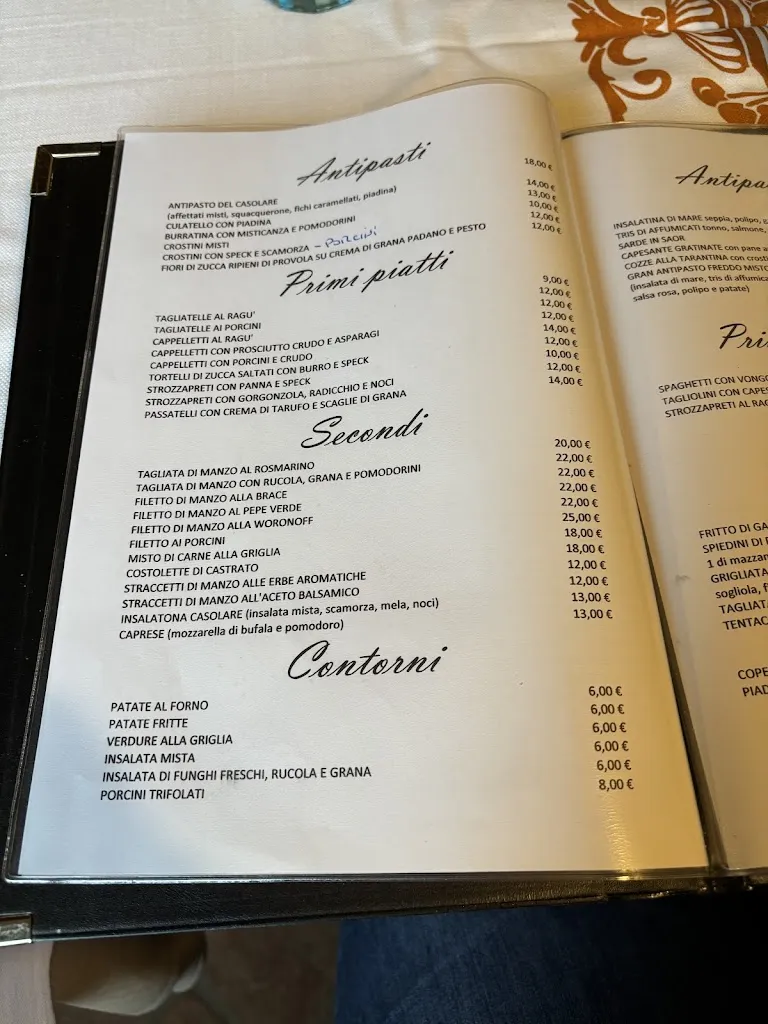 Antipasti
ANTIPASTO DEL CASOLARE 18,00 €
(affettati misti, squacquerone, fichi caramellati, piadina)
CULATELLO CON PIADINA 14,00 €
BURRATINA CON MISTICANZA E POMODORINI 13,00 €
CROSTINI MISTI 10,00 €
CROSTINI CON SPECK E SCAMORZA – PORCINI 12,00 €
FIORI DI ZUCCA RIPIENI DI PROVOLA SU CREMA DI GRANA PADANO E PESTO 12,00 €
Primi piatti
TAGLIATELLE AL RAGU' 9,00 €
TAGLIATELLE AI PORCINI 12,00 €
CAPPELLETTI AL RAGU' 12,00 €
CAPPELLETTI CON PROSCIUTTO CRUDO E ASPARAGI 12,00 €
CAPPELLETTI CON PORCINI E CRUDO 14,00 €
TORTELLI DI ZUCCA SALTATI CON BURRO E SPECK 12,00 €
STROZZAPRETI CON PANNA E SPECK 10,00 €
STROZZAPRETI CON GORGONZOLA, RADICCHIO E NOCI 12,00 €
PASSATELLI CON CREMA DI TARUFO E SCAGLIE DI GRANA 14,00 €
Secondi
TAGLIATA DI MANZO AL ROSMARINO 20,00 €
TAGLIATA DI MANZO CON RUCOLA, GRANA E POMODORINI 22,00 €
FILETTO DI MANZO ALLA BRACE 22,00 €
FILETTO DI MANZO AL PEPE VERDE 22,00 €
FILETTO DI MANZO ALLA WORONOFF 22,00 €
FILETTO AI PORCINI 25,00 €
MISTO DI CARNE ALLA GRIGLIA 18,00 €
COSTOLETTE DI CASTRATO 18,00 €
STRACCETTI DI MANZO ALLE ERBE AROMATICHE 12,00 €
STRACCETTI DI MANZO ALL'ACETO BALSAMICO 12,00 €
INSALATONA CASOLARE (insalata mista, scamorza, mela, noci) 13,00 €
CAPRESE (mozzarella di bufala e pomodoro) 13,00 €
Contorni
PATATE AL FORNO 6,00 €
PATATE FRITTE 6,00 €
VERDURE ALLA GRIGLIA 6,00 €
INSALATA MISTA 6,00 €
INSALATA DI FUNGHI FRESCHI, RUCOLA E GRANA 6,00 €
PORCINI TRIFOLATI 8,00 €
Antipa
INSALATINA DI MARE seppia, polipo, g
TRIS DI AFFUMICATI tonno, salmone,
SARDE IN SAOR
CAPESANTE GRATINATE con pane a
COZZE ALLA TARANTINA con crosti
GRAN ANTIPASTO FREDDO MISTO
(insalata di mare, tris di affumica
salsa rosa, polipo e patate)
Pri
SPAGHETTI CON VONGO
TAGLIOLINI CON CAPES
STROZZAPRETI AL RAG
FRITTO DI GA
SPIEDINI DI
1 di mazzan
GRIGLIATA
sogliola, f
TAGLIATA
TENTAC
COPE
PIAD